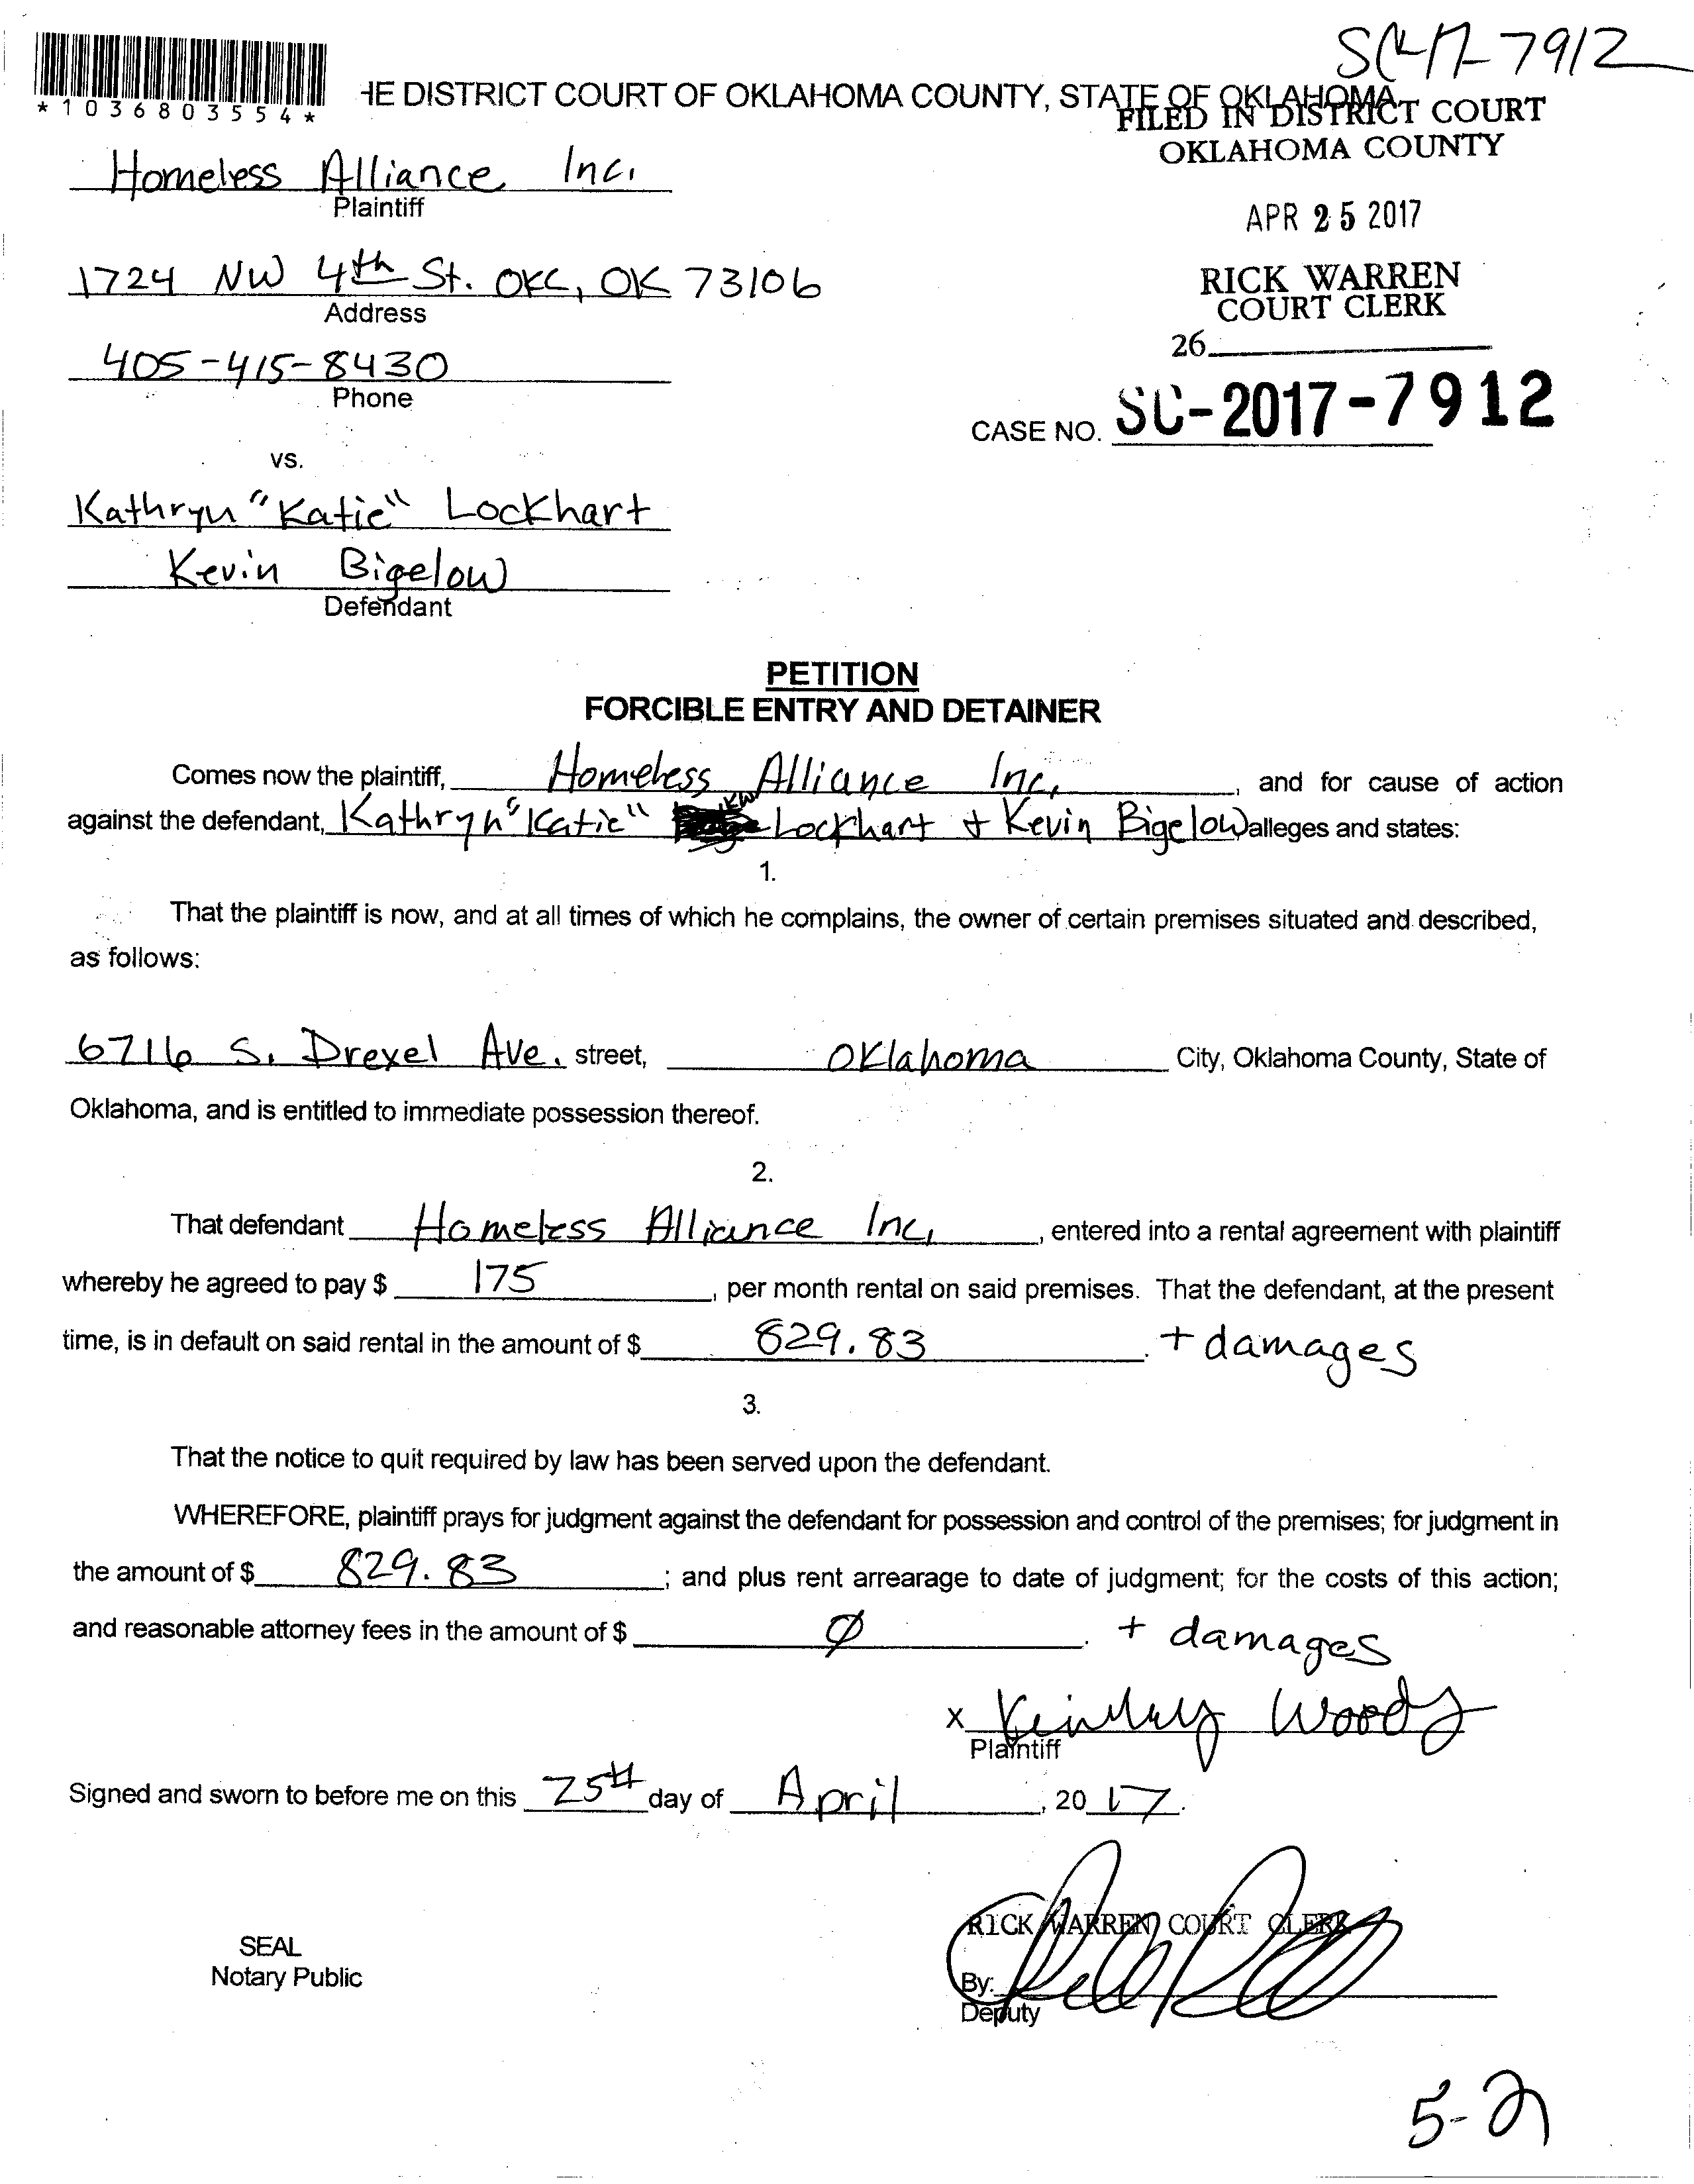 SC-17-7912
*1036803554*
HE DISTRICT COURT OF OKLAHOMA COUNTY, STATE OF OKLAHOMA
FILED IN DISTRICT COURT
OKLAHOMA COUNTY
Homeless Alliance Inc.
Plaintiff
APR 25 2017
1724 NW 4th St. OKC, OK 73106
Address
RICK WARREN
COURT CLERK
405-415-8430
Phone
26
CASE NO. SC-2017-7912
vs.
Kathryn "Katie" Lockhart
Kevin Bigelow
Defendant
PETITION
FORCIBLE ENTRY AND DETAINER
Comes now the plaintiff, Homeless Alliance Inc., and for cause of action
against the defendant, Kathryn "Katie" KW Lockhart + Kevin Bigelow alleges and states:
1.
That the plaintiff is now, and at all times of which he complains, the owner of certain premises situated and described,
as follows:
6716 S. Drexel Ave. street, Oklahoma City, Oklahoma County, State of
Oklahoma, and is entitled to immediate possession thereof.
2.
That defendant Homeless Alliance Inc., entered into a rental agreement with plaintiff
whereby he agreed to pay $ 175, per month rental on said premises. That the defendant, at the present
time, is in default on said rental in the amount of $ 829.83. + damages
3.
That the notice to quit required by law has been served upon the defendant.
WHEREFORE, plaintiff prays for judgment against the defendant for possession and control of the premises; for judgment in
the amount of $ 829.83; and plus rent arrearage to date of judgment; for the costs of this action;
and reasonable attorney fees in the amount of $ Ø. + damages
x Kinley Woody
Plaintiff
Signed and sworn to before me on this 25th day of April, 2017.
RICK WARREN COURT CLERK
SEAL
Notary Public
By:
Deputy
5-21